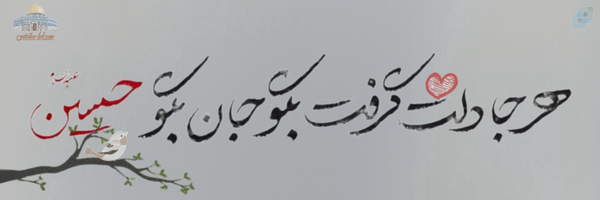 هر جا دلت گرفت بگو جان بگو حسین
علیه السلام